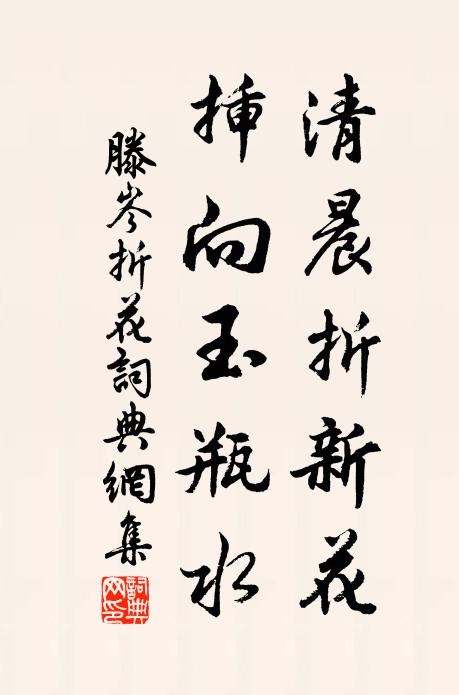 清晨折新花
挿向玉瓶水
滕岑折花詞典網集
詞典网印